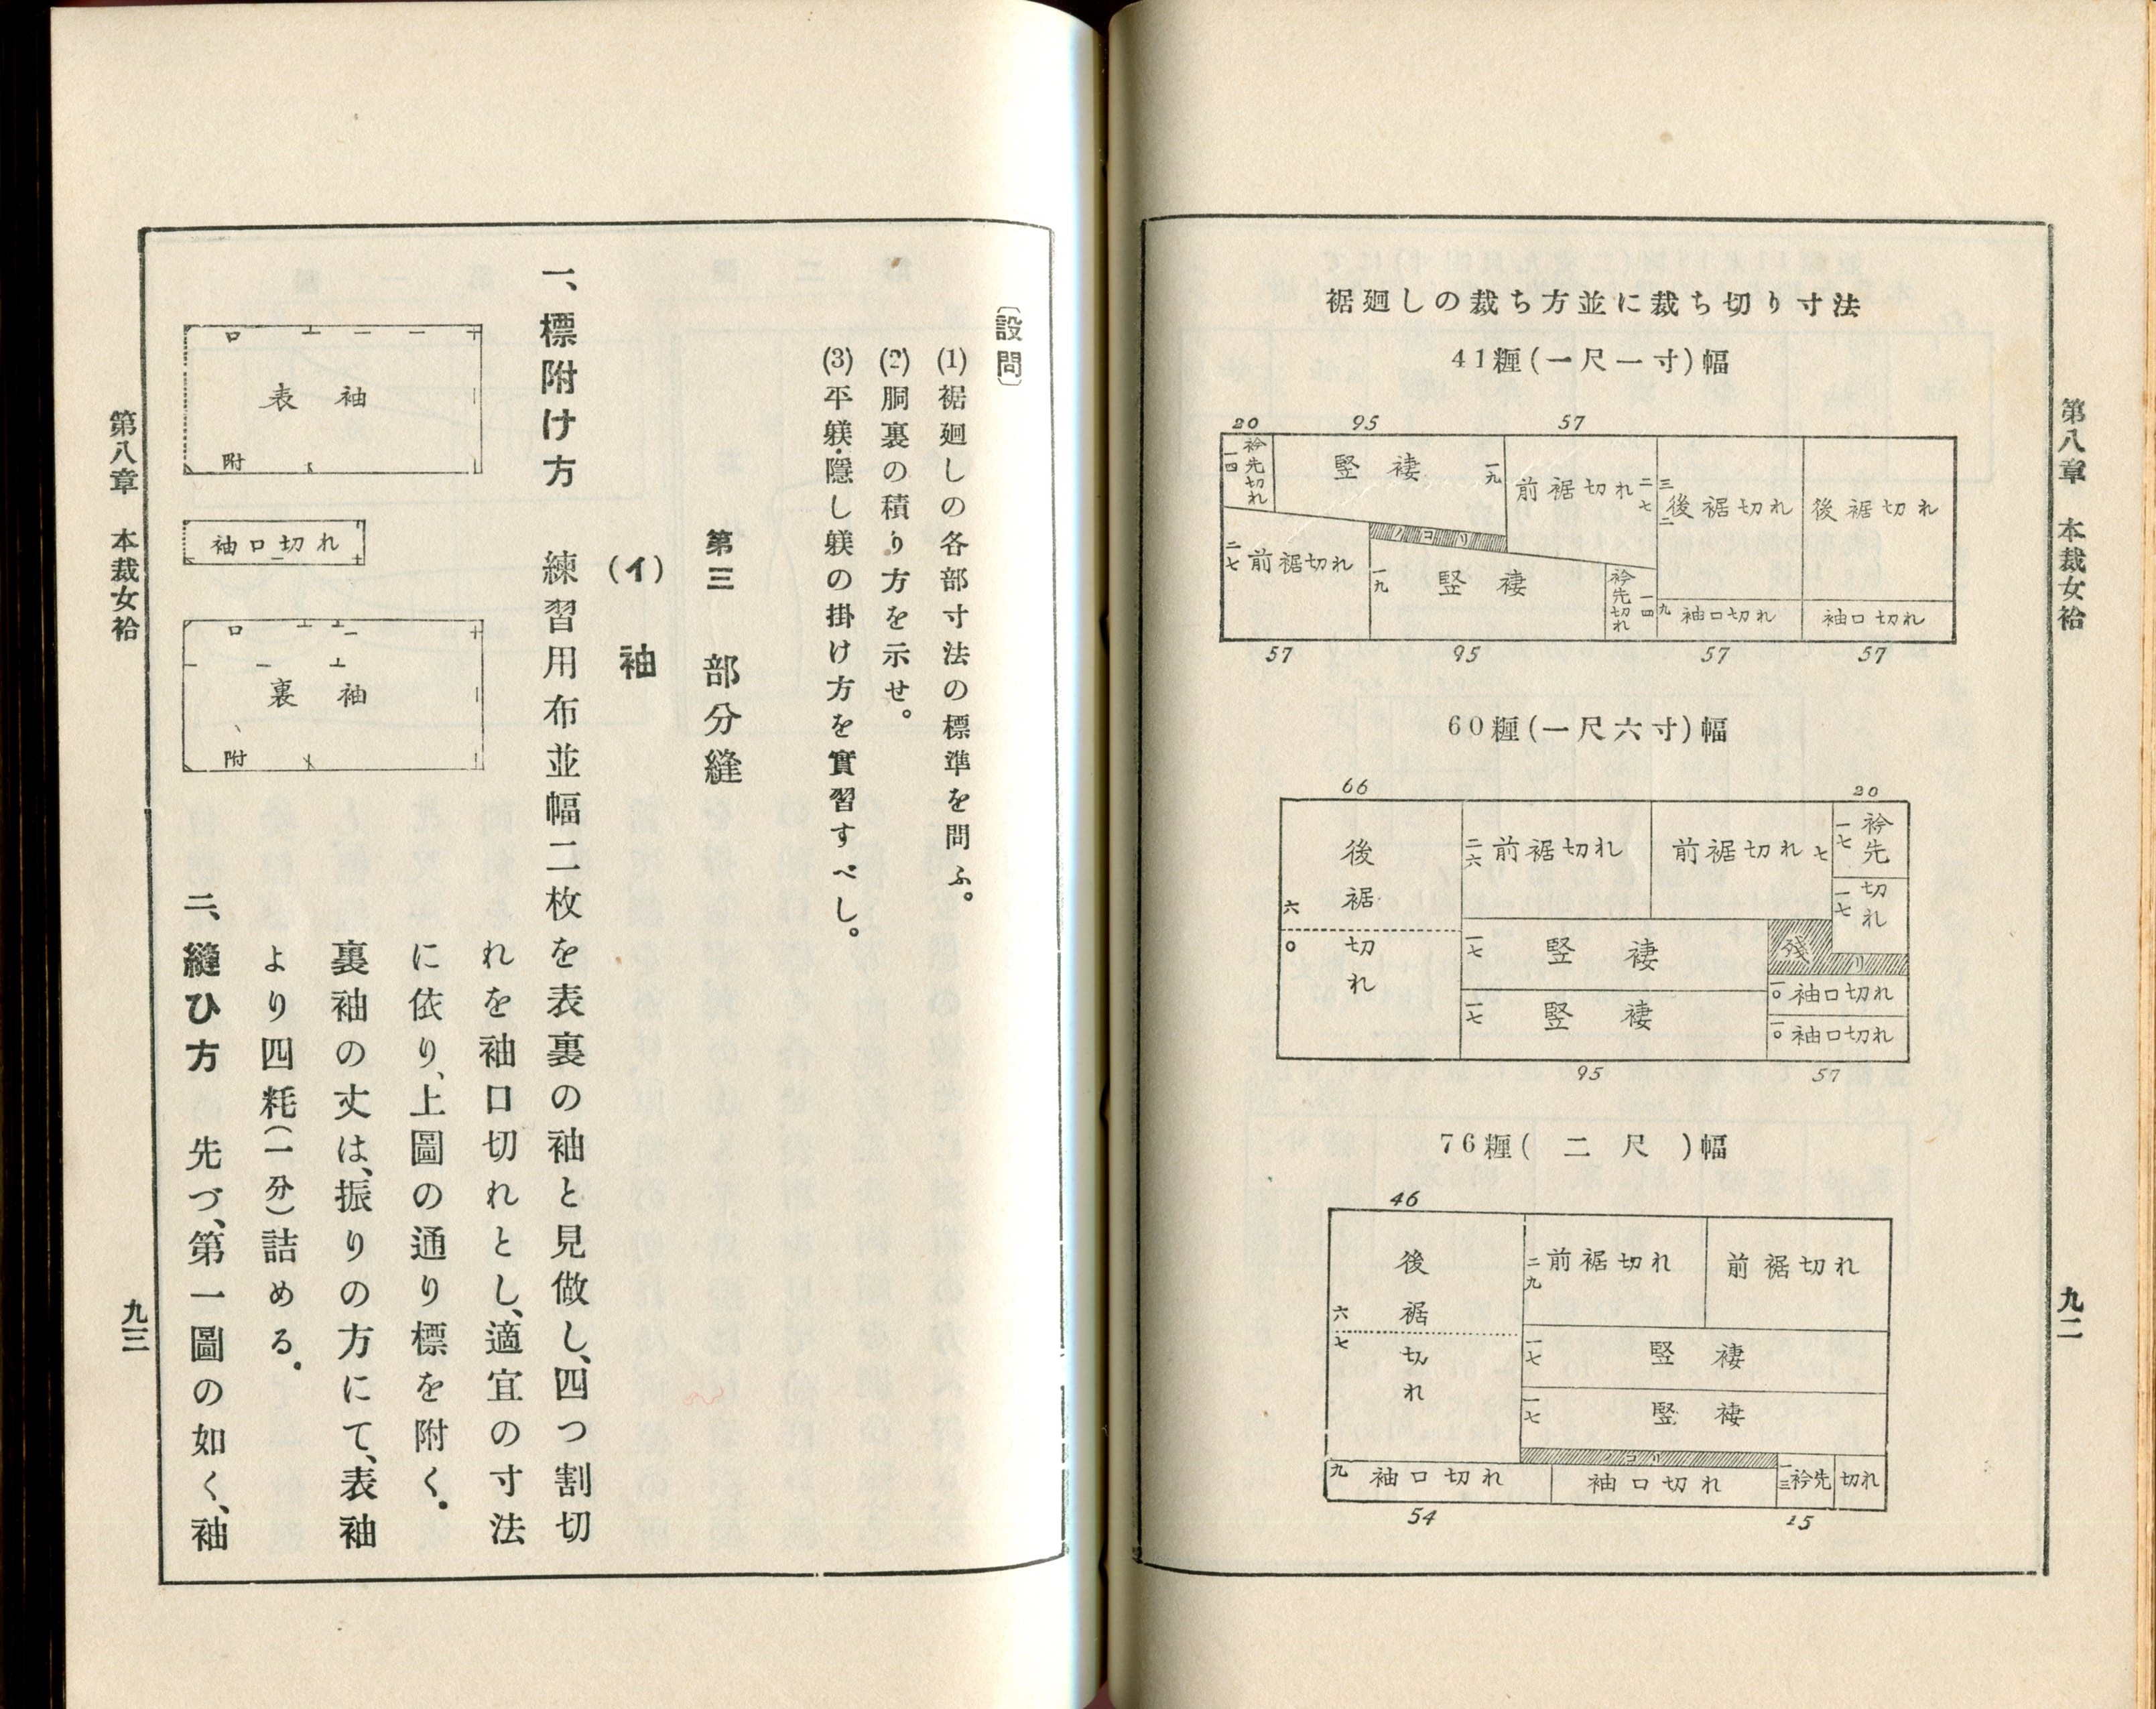 第八章　本裁女袷
九二
裾廻しの裁ち方並に裁ち切り寸法
41糎(一尺一寸)幅
20
95
57
衿先切れ
一四
竪褄
一九
前裾切れ
二七
三二
後裾切れ
後裾切れ
二七
前裾切れ
ノコリ
一九
竪褄
衿先切れ
一四
九
袖口切れ
袖口切れ
57
95
57
57
60糎(一尺六寸)幅
66
20
後裾切れ
六〇
二六
前裾切れ
前裾切れ
七
一七
衿先
一七
切れ
一七
竪褄
残
リ
一七
竪褄
一〇
袖口切れ
一〇
袖口切れ
95
57
76糎(二尺)幅
46
後裾切れ
六七
二九
前裾切れ
前裾切れ
一七
竪褄
一七
竪褄
ノコリ
九
袖口切れ
袖口切れ
一三
衿先
切れ
54
15
〔設問〕
(1)裾廻しの各部寸法の標準を問ふ。
(2)胴裏の積り方を示せ。
(3)平躾・隱し躾の掛け方を實習すべし。
第三　部分縫
(イ)　袖
一、標附け方　練習用布並幅二枚を表裏の袖と見做し、四つ割切
れを袖口切れとし、適宜の寸法
に依り、上圖の通り標を附く。
裏袖の丈は、振りの方にて、表袖
より四粍(一分)詰める。
二、縫ひ方　先づ、第一圖の如く、袖
口
表袖
附
袖口切れ
口
裏袖
附
第八章　本裁女袷
九三